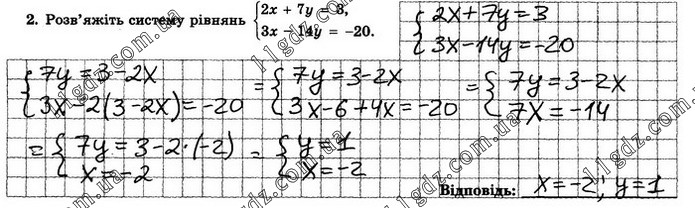 2. Розв'яжіть систему рівнянь { 2x + 7y = 3, 3x − 14y = −20.
{ 2x+7y=3 3x−14y=−20
{ 7y=3−2x 3x−2(3−2x)=−20 = { 7y=3−2x 3x−6+4x=−20 = { 7y=3−2x 7x=−14
= { 7y=3−2·(−2) x=−2 = { y=1 x=−2
Відповідь: x=−2; y=1
11gdz.com.ua